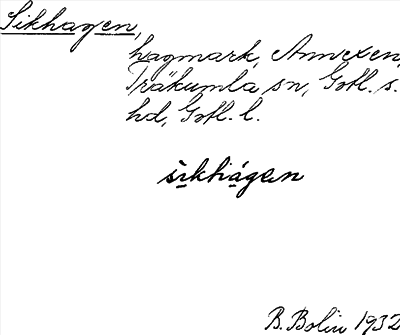 Sikhagen,
hagmark, Annexen,
Träkumla sn, Gotl. s.
hd, Gotl. l.
sìkhágen
B. Bolin 1932